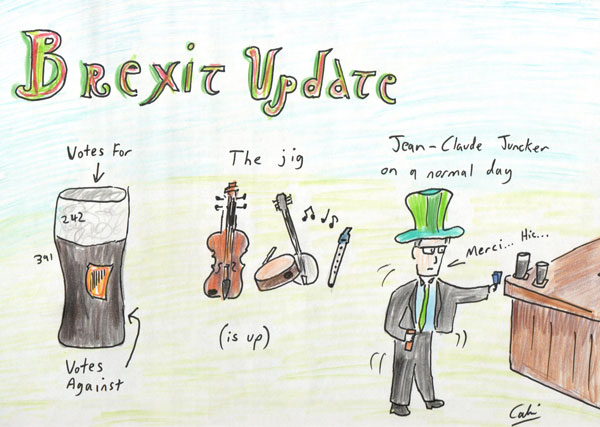 Brexit Update
Votes For
242
391
Votes
Against
The jig
(is up)
Jean-Claude Juncker
on a normal day
Merci... Hic...